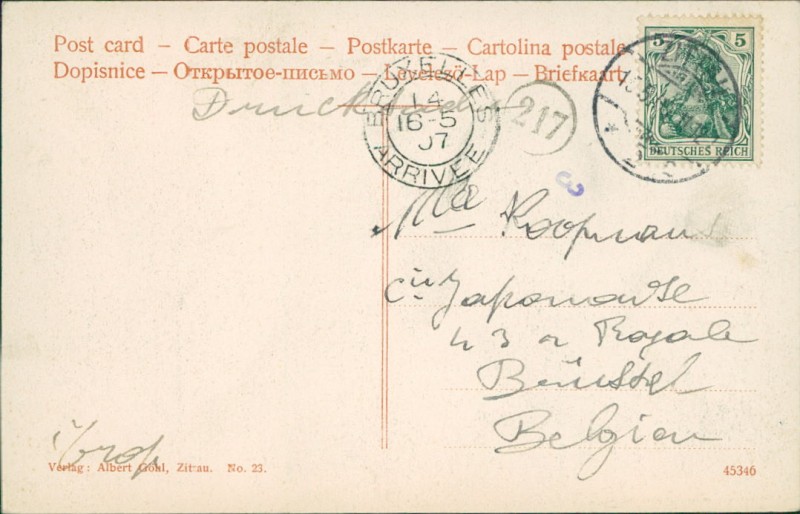 Post card – Carte postale – Postkarte – Cartolina postale
Dopisnice – Открытое-письмо – Levelező-Lap – Briefkaart
Drucksache
BRUXELLES
14
16-5
07
ARRIVÉE
217
5 5
DEUTSCHES REICH
3
Koopman
Cie Japonaise
43 Royale
Brüssel
Belgien
Verlag: Albert Gohl, Zittau. No. 23.
45346